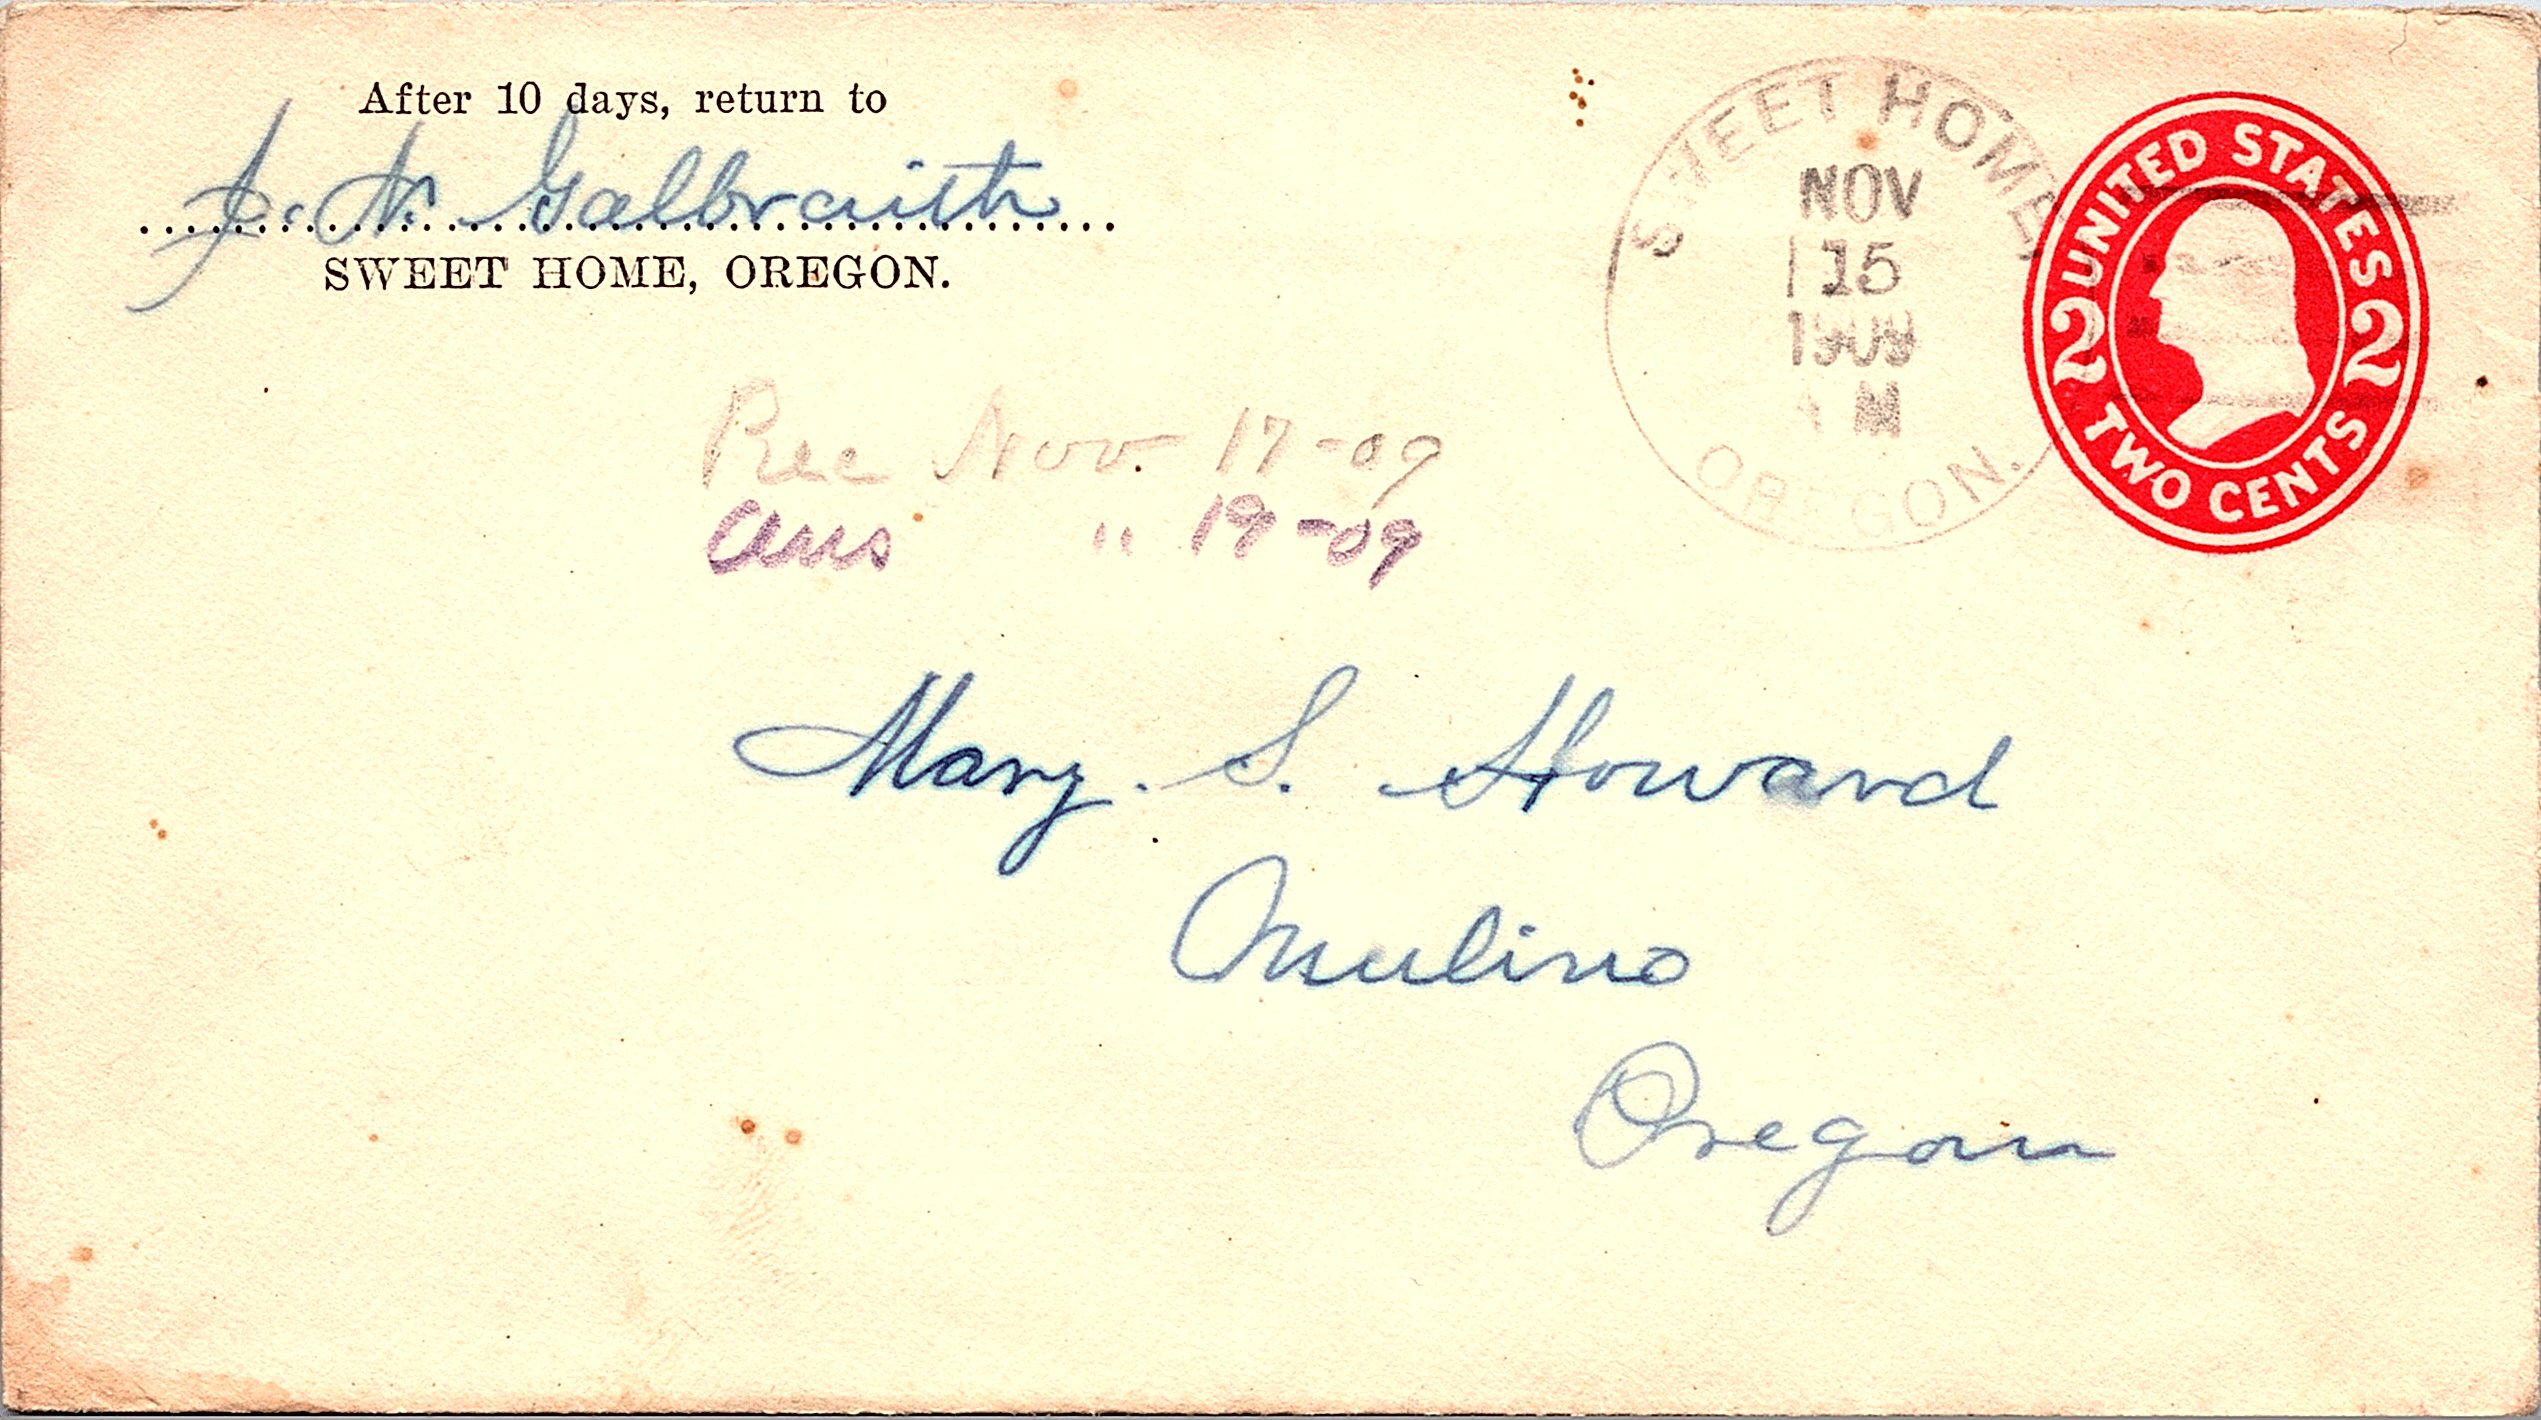 After 10 days, return to
J. N. Galbraith
SWEET HOME, OREGON.
SWEET HOME
NOV
15
1909
AM
OREGON.
UNITED STATES
2 2
TWO CENTS
Rec Nov. 17-09
Ans " 19-09
Mary. S. Howard
Mulino
Oregon